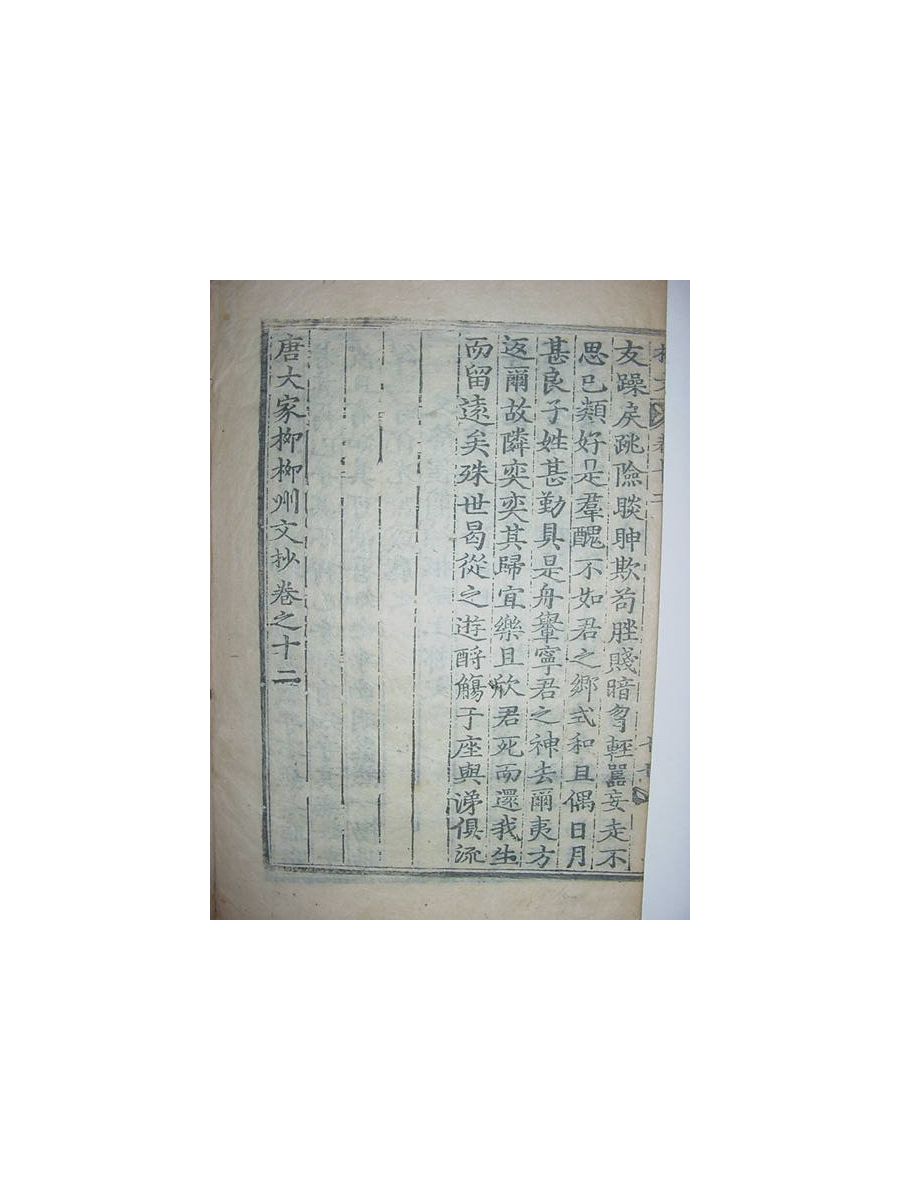 友躁戾跳隂睒䀼欺苟脞賤暗曶輕囂妄走不
思己類好是羣醜不如君之鄉式和且偶日月
甚良子姓甚勤具是舟轝寧君之神去爾夷方
返爾故隣奕奕其歸宜樂且欣君死而還我生
而留遠矣殊世曷從之遊酹觴于座與涕俱流
唐大家柳柳州文抄卷之十二